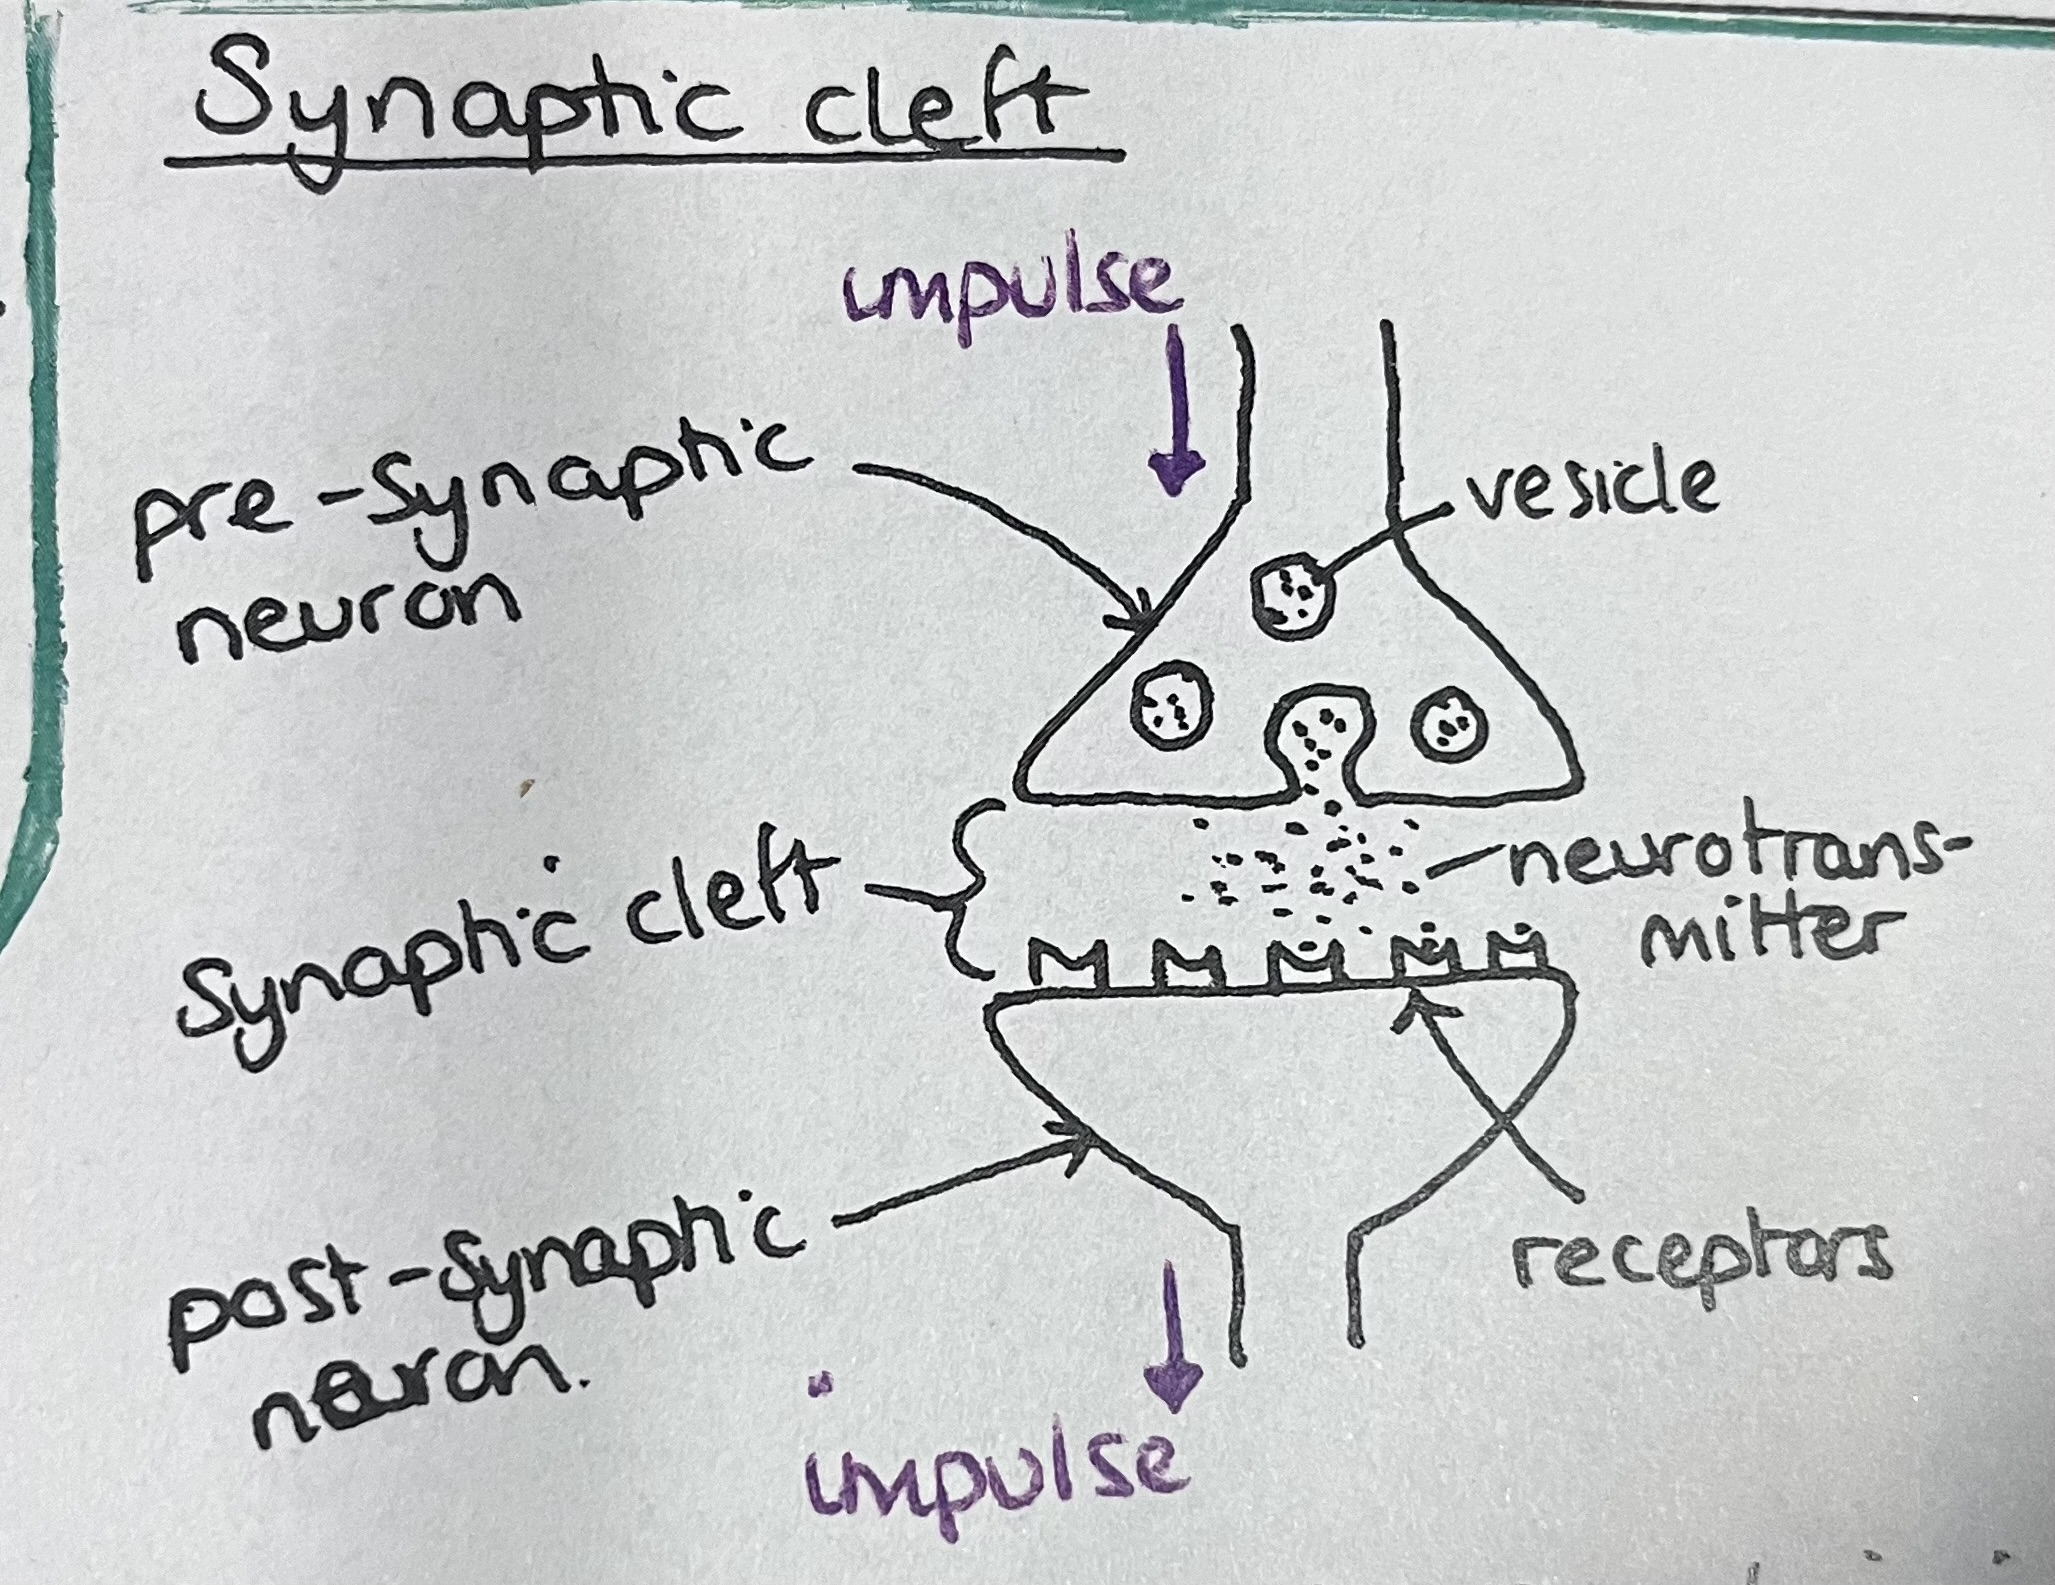 Synaptic cleft
impulse
pre-synaptic
neuron
vesicle
synaptic cleft
neurotrans-
mitter
post-synaptic
neuron.
receptors
impulse